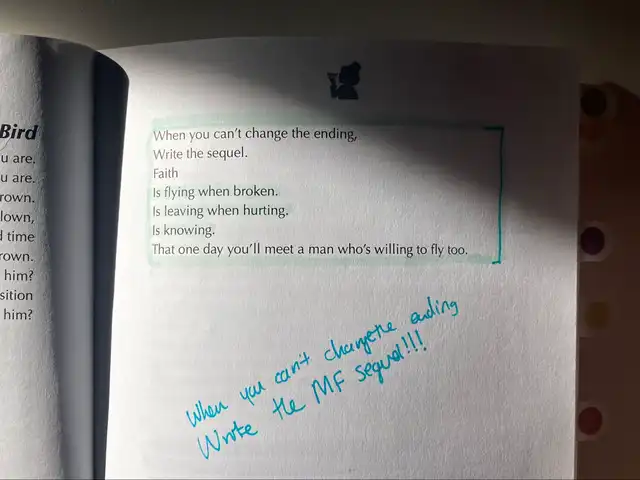 Bird
u are.
u are.
rown.
lown,
time
rown.
him?
sition
him?
When you can't change the ending,
Write the sequel.
Faith
Is flying when broken.
Is leaving when hurting.
Is knowing.
That one day you'll meet a man who's willing to fly too.
When you can't change the ending
Wrote the MF sequel!!!